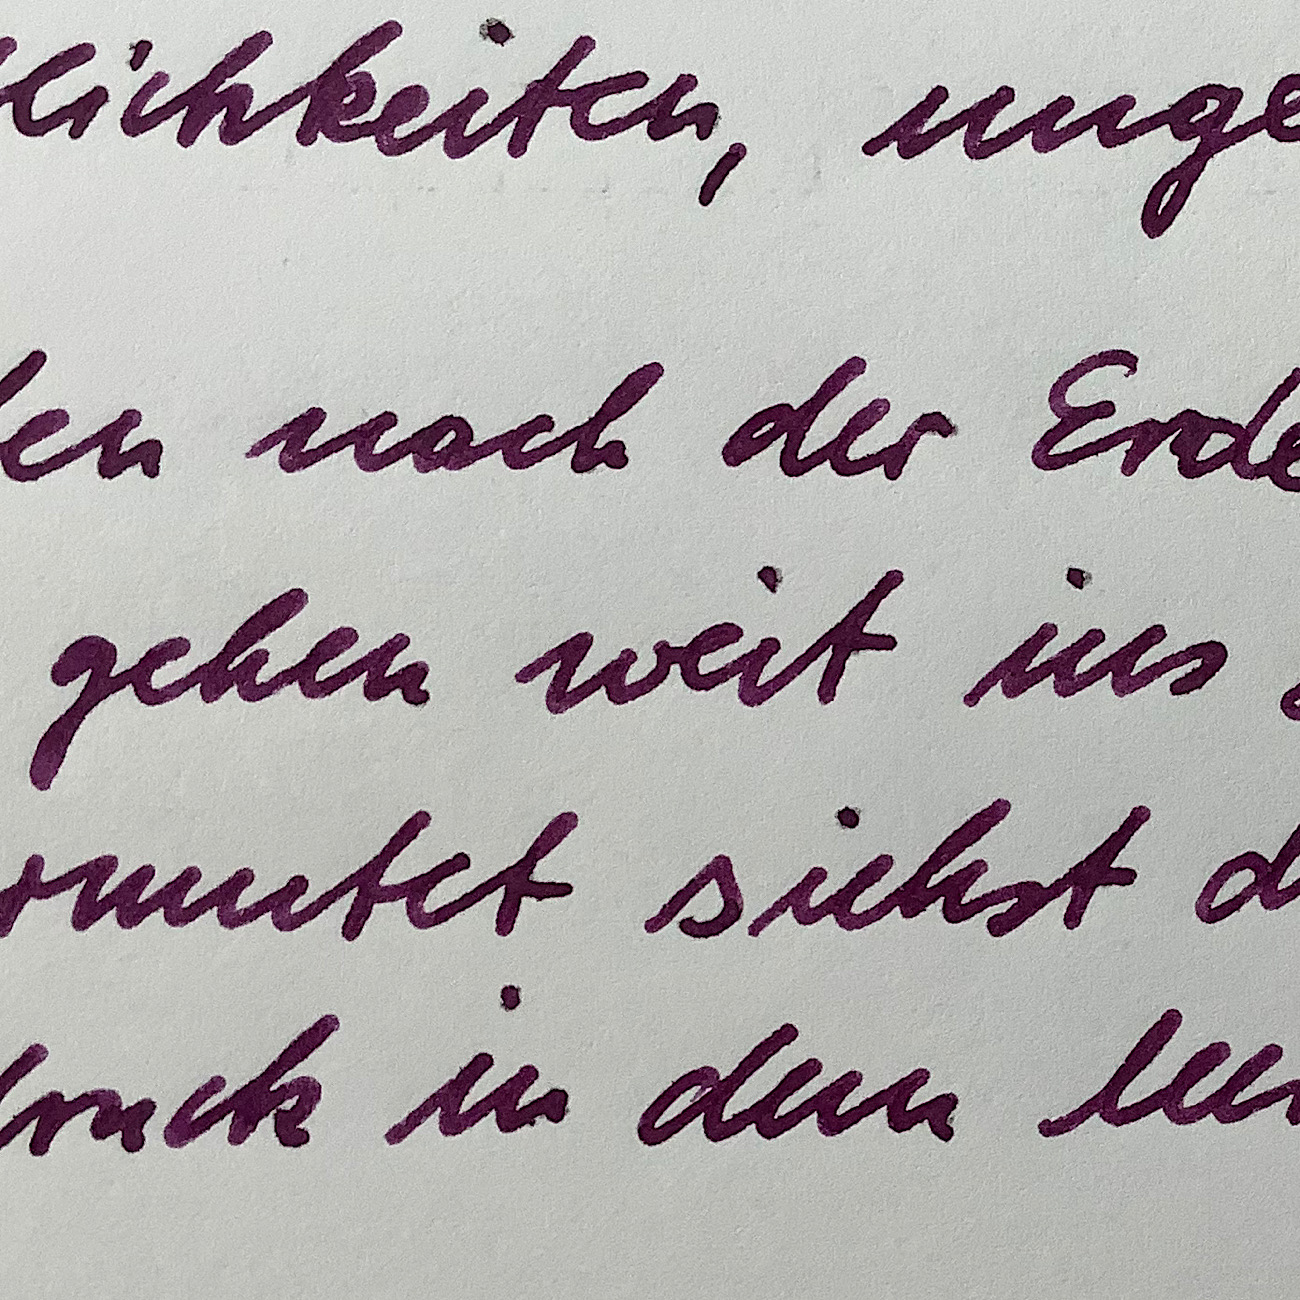 lichkeiten, unge
en nach der Erde
gehen weit ins
rmutet siehst d
druck in den leer